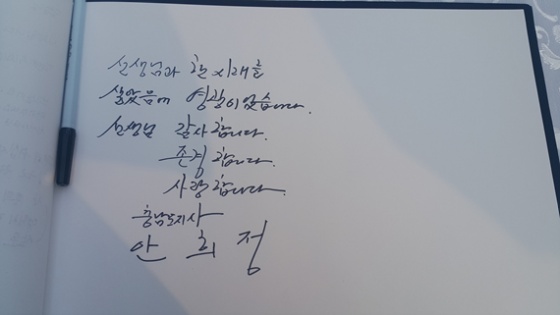 선생님과 한 시대를
살았음에 영광이었습니다.
선생님 감사합니다.
존경합니다.
사랑합니다.
충남도지사
안 희 정